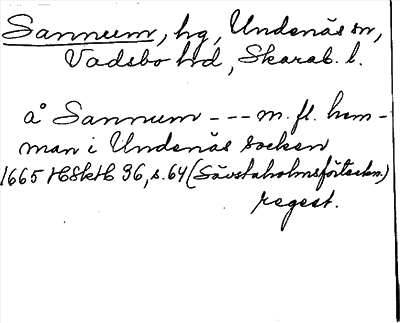 Sannum, hg, Undenäs sn,
Vadsbo hd, Skarab. l.
å Sannum --- m. fl. hem-
man i Undenäs socken
1665 HSkH 36, s. 64 (Sävstaholmsförteckn.)
regest.